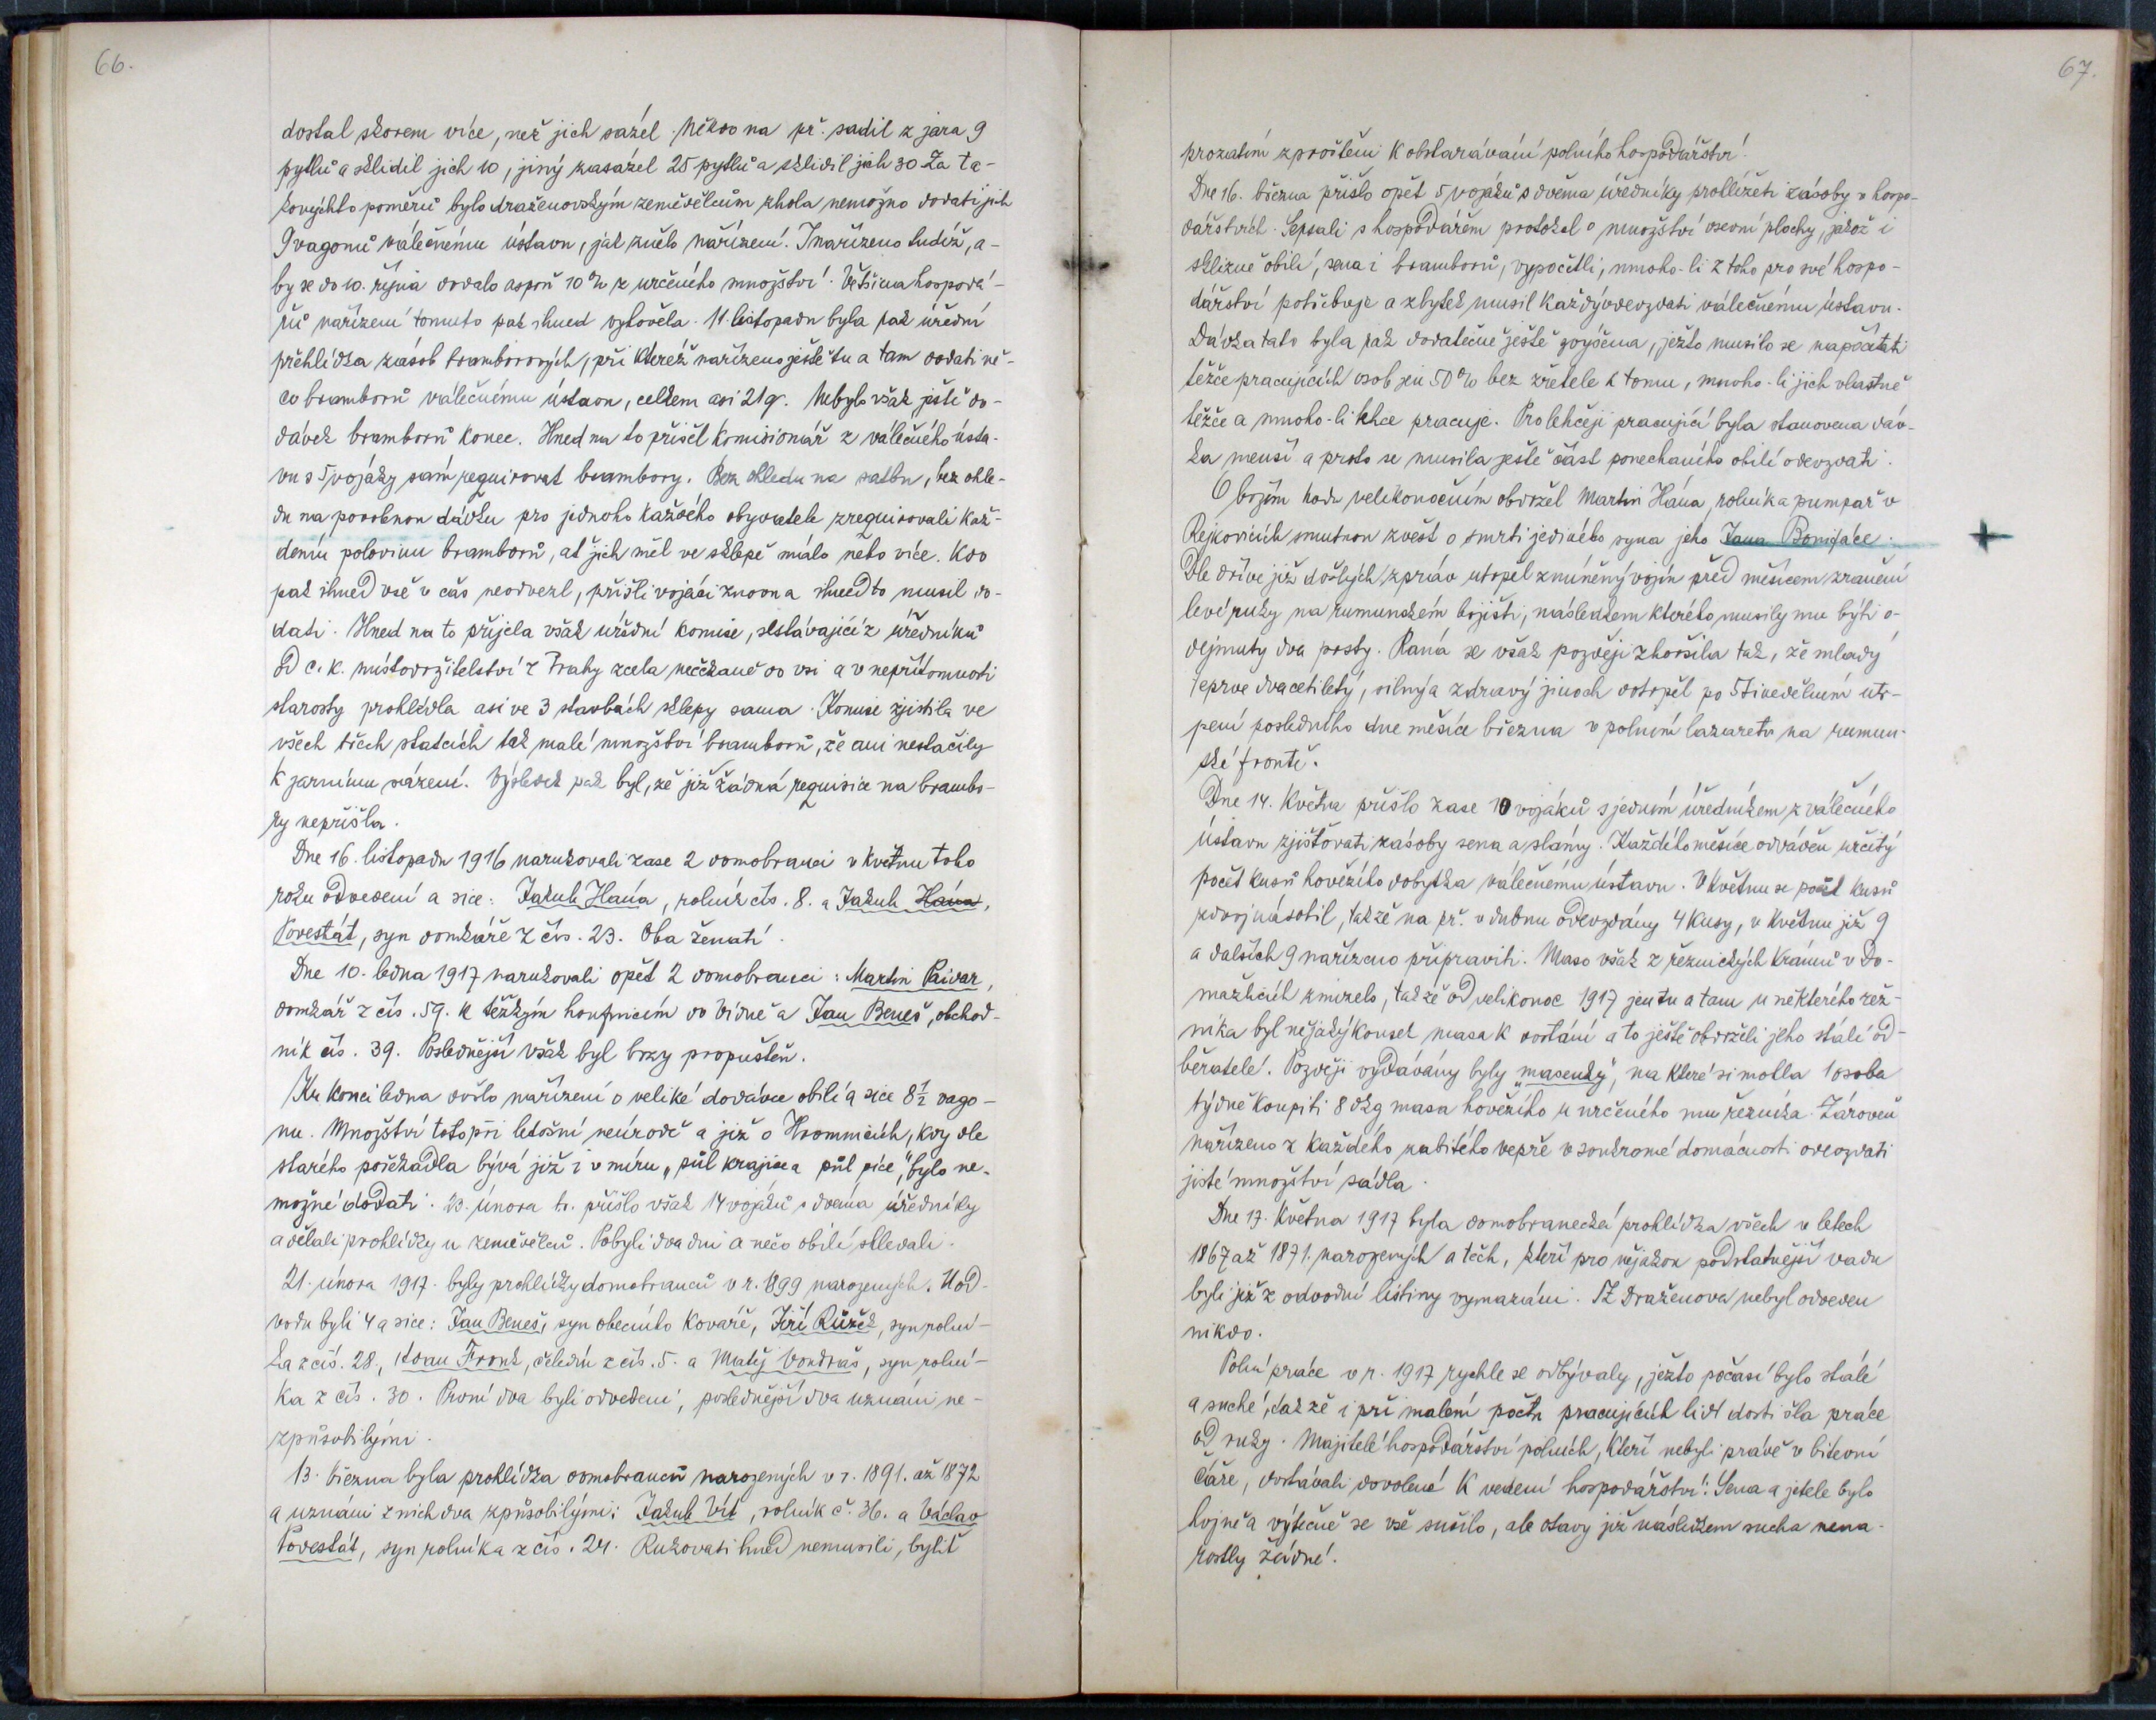 66.
dostal skorem více, než jich sázel. Někdo na př. sadil z jara 9
pytlů a sklidil jich 10, jiný zasázel 25 pytlů a sklidil jich 30. Za ta-
kovýchto poměrů bylo draženovským zemědělcům zhola nemožno dodati jich
9 vagonů válečnému ústavu, jak znělo nařízení. I nařízeno tudíž, a-
by se do 10. října dodalo aspoň 10% z určeného množství. Většina hospodá-
řů nařízení tomuto pak ihned vyhověla. 11. listopadu byla pak úřední
přehlídka zásob bramborových, při kteréž nařízeno ještě tu a tam dodati ně-
co bramborů válečnému ústavu, celkem asi 21 q. Nebylo však ještě do-
dávek bramborů konec. Hned na to přišel komisionář z válečného ústa-
vu s 5 vojáky sám requirovat brambory. Bez ohledu na sadbu, bez ohle-
du na povolenou dávku pro jednoho každého obyvatele zrequirovali kaž-
dému polovinu bramborů, ať jich měl ve sklepě málo nebo více. Kdo
pak ihned vše v čas neodvezl, přišli vojáci znovu a ihned to musil do-
dati. Hned na to přijela však úřední komise, sestávající z úředníků
od c. k. místodržitelství z Prahy zcela nečekaně do vsi a v nepřítomnosti
starosty prohlédla asi ve 3 stavbách sklepy sama. Komise zjistila ve
všech třech statcích tak malé množství bramborů, že ani nestačily
k jarnímu sázení. Výsledek pak byl, že již žádná requisice na brambo-
ry nepřišla.
Dne 16. listopadu 1916 narukovali zase 2 domobranci v květnu toho
roku odvedení a sice: Jakub Hána, rolník čís. 8. a Jakub Hána,
Povestát, syn domkáře z čís. 23. Oba ženatí.
Dne 10. ledna 1917 narukovali opět 2 domobranci: Martin Paidar,
domkář z čís. 59. k těžkým houfnicím do Vídně a Jan Beneš, obchod-
ník čís. 39. Poslednější však byl brzy propuštěn.
Ku konci ledna došlo nařízení o veliké dodávce obilí a sice 8½ vago-
nu. Množství toto při letošní neúrodě a již o Hromnicích, kdy dle
starého pořekadla bývá již i v míru „půl krajíce a půl píce," bylo ne-
možné dodati. 13. února tr. přišlo však 14 vojáků s dvěma úředníky
a dělali prohlídky u zemědělců. Pobyli dva dni a něco obilí shledali.
21. února 1917. byly prohlídky domobranců v r. 1899 narozených. U od-
vodu byli 4 a sice: Jan Beneš, syn obecního kováře, Jiří Růžek, syn rolní-
ka z čís. 28., Adam Fronk, čeledín z čís. 5. a Matěj Vondraš, syn rolní-
ka z čís. 30. První dva byli odvedeni, poslednější dva uznáni ne-
způsobilými.
13. března byla prohlídka domobranců narozených v r. 1891. až 1872
a uznáni z nich dva způsobilými: Jakub Vít, rolník č. 36. a Václav
Povestát, syn rolníka z čís. 24. Rukovati hned nemusili, bylit
67.
prozatím zproštěni k obstarávání polního hospodářství.
Dne 16. března přišlo opět 5 vojáků s dvěma úředníky prohlížeti zásoby v hospo-
dářstvích. Sepsali s hospodářem protokol o množství osevní plochy, jakož i
sklizně obilí, sena i bramborů, vypočetli, mnoho-li z toho pro své hospo-
dářství potřebuje a zbytek musil každý odevzdati válečnému ústavu.
Dávka tato byla pak dodatečně ještě zvýšena, ježto musilo se napočítati
těžce pracujících osob jen 50% bez zřetele k tomu, mnoho-li jich vlastně
těžce a mnoho-li lehce pracuje. Pro lehčeji pracující byla stanovena dáv-
ka menší a proto se musila ještě část ponechaného obilí odevzdati.
O božím hodu velikonočním obdržel Martin Hána, rolník a pumpař v
Rejkovicích smutnou zvěst o smrti jediného syna jeho Jana Bonifáce.
Dle dříve již došlých zpráv utrpěl zmíněný vojín před měsícem zranění
levé ruky na rumunském bojišti, následkem kteréhož musily mu býti o-
dejmuty dva prsty. Rána se však později zhoršila tak, že mladý
teprve dvacetiletý, silný a zdravý jinoch dotrpěl po 5tinedělním utr-
pení posledního dne měsíce března v polním lazaretu na rumun-
ské frontě.
Dne 14. května přišlo zase 10 vojáků s jedním úředníkem z válečného
ústavu zjišťovati zásoby sena a slámy. Každého měsíce odváděn určitý
počet kusů hovězího dobytka válečnému ústavu. V květnu se počet kusů
zdvojnásobil, takže na př. v dubnu odevzdány 4 kusy, v květnu již 9
a dalších 9 nařízeno připraviti. Maso však z řeznických krámů v Do-
mažlicích zmizelo, takže od velikonoc 1917 jen tu a tam u některého řez-
níka byl nějaký kousek masa k dostání a to ještě obdrželi jeho stálí od-
běratelé. Později vydávány byly „masenky", na které si mohla 1 osoba
týdně koupiti 8 dkg masa hovězího u určeného mu řezníka. Zároveň
nařízeno z každého zabitého vepře v soukromé domácnosti odevzdati
jisté množství sádla.
Dne 17. května 1917 byla domobranecká prohlídka všech v letech
1867 až 1871. narozených a těch, kteří pro nějakou podstatnější vadu
byli již z odvodní listiny vymazáni. Z Draženova nebyl odveden
nikdo.
Polní práce v r. 1917 rychle se odbývaly, ježto počasí bylo stálé
a suché, takže i při malém počtu pracujících lidí dosti šla práce
od ruky. Majitelé hospodářství polních, kteří nebyli právě v bitevní
čáře, dostávali dovolené k vedení hospodářství. Sena a jetele bylo
hojně a výtečně se vše sušilo, ale otavy již následkem sucha nena-
rostly žádné.